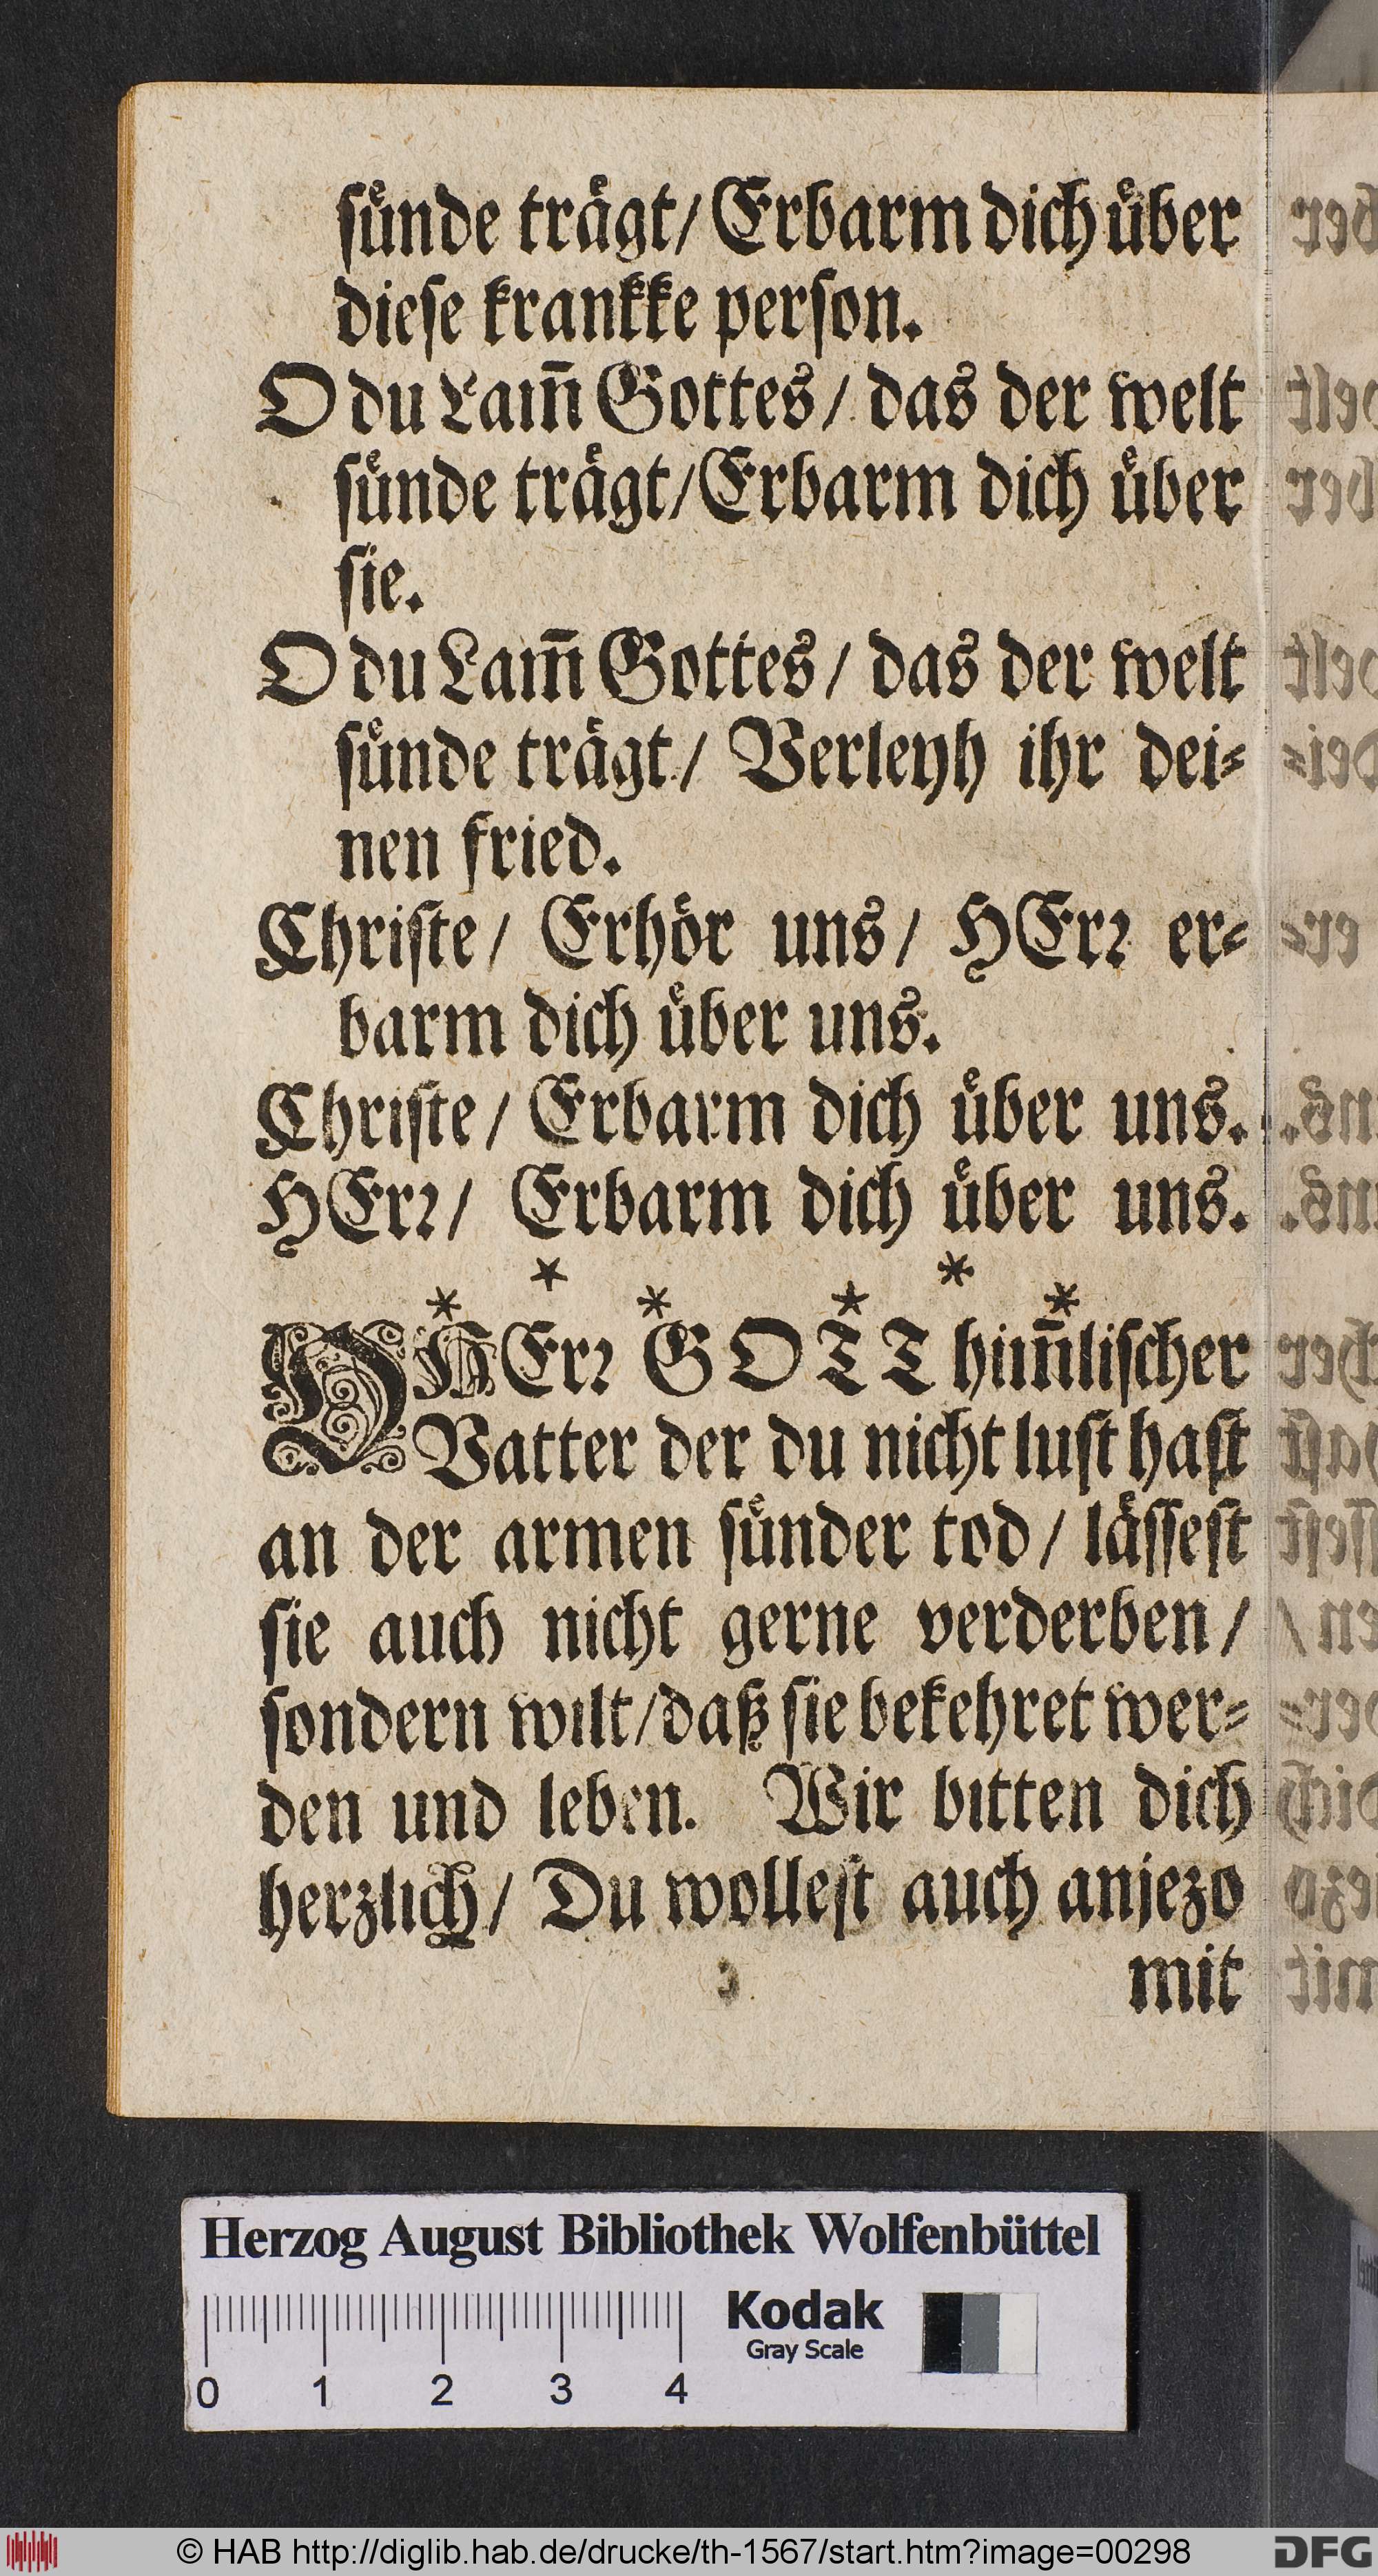 ſuͤnde traͤgt/ Erbarm dich uͤber
dieſe krankke perſon.
O du Lam̃ Gottes/ das der welt
ſuͤnde traͤgt/ Erbarm dich uͤber
ſie.
O du Lam̃ Gottes/ das der welt
ſuͤnde traͤgt/ Verleyh ihr dei⸗
nen fried.
Chriſte/ Erhoͤr uns/ HErꝛ er⸗
barm dich uͤber uns.
Chriſte/ Erbarm dich uͤber uns.
HErꝛ/ Erbarm dich uͤber uns.
* * * * * *
HErꝛ GOTT him̃liſcher
Vatter der du nicht luſt haſt
an der armen ſuͤnder tod/ laͤſſeſt
ſie auch nicht gerne verderben/
ſondern wilt/ daß ſie bekehret wer⸗
den und leben. Wir bitten dich
herzlich/ Du wolleſt auch anjezo
mit
Herzog August Bibliothek Wolfenbüttel
Kodak
Gray Scale
0 1 2 3 4
© HAB http://diglib.hab.de/drucke/th-1567/start.htm?image=00298
DFG